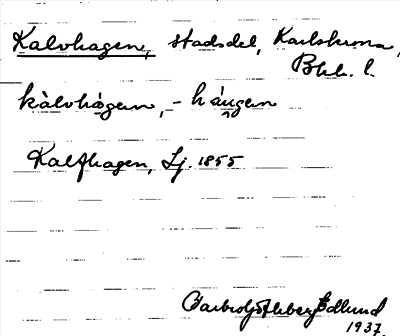 Kalvhagen, stadsdel, Karlskrona,
Blek. l.
kàlvhàgen, - háu̯gen
Kalfhagen, Lj. 1855
Edlund
1937.